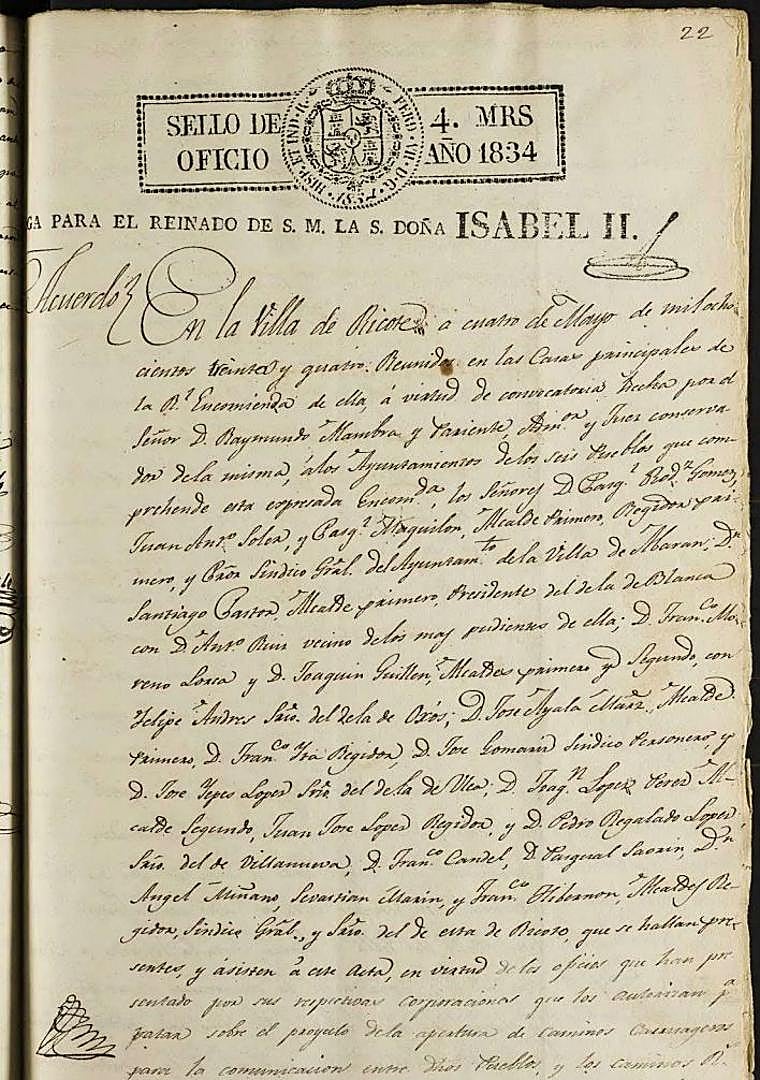 22
SELLO DE OFICIO
HISP. ET IND. R. FERD. VII. D. G.
4. MRS AÑO 1834
GA PARA EL REINADO DE S. M. LA S. DOÑA ISABEL II.
Acuerdo
En la Villa de Ricote á cuatro de Mayo de mil ocho-
cientos treinta y quatro: Reunidos en las Casas principales de
la Rl Encomienda de ella, á virtud de convocatoria hecha por el
Señor D. Raymundo Mambra y Pariente, Admor y Juez conserva-
dor de la misma, á los Ayuntamientos de los seis Pueblos que com-
prehende esta expresada Encomda, los Señores D. Pasql Rodz Gomez,
Juan Anto Soler, y Pasql Maquilon, Alcalde Primero, Regidor pri-
mero, y Pror Sindico Gral. del Ayuntamto de la Villa de Abaran; Dn
Santiago Pastor, Alcalde primero, Presidente del de la de Blanca
con D. Anto Ruiz vecino de los mas pudientes de ella; D. Franco Mo-
reno Lorca y D. Joaquin Guillen, Alcaldes primero y Segundo, con
Felipe Andres Srio. del de la de Ojós; D. Jose Ayala Marz, Alcalde
Primero, D. Franco Yra Regidor, D. Jose Gomariz Sindico Personero, y
D. Jose Yepes Lopez Srio. del de la de Ulea; D. Joaqn Lopez Perez Al-
calde Segundo, Juan Jose Lopez Regidor, y D. Pedro Regalado Lopez
Srio. del de Villanueva, D. Franco Candel, D. Pasqual Saorin, Dn
Angel Miñano, Sevastian Marin, y Franco Hilernon, Alcaldes Re-
gidor, Sindico Gral., y Srio. del de esta de Ricote, que se hallan pre-
sentes, y asisten á este Acta, en virtud de los oficios que han pre
sentado por sus respectivas corporaciones que los autorizan pa
tratar sobre el proyecto de la apertura de caminos carruageros
para la comunicacion entre dhos Pueblos, y los caminos R.